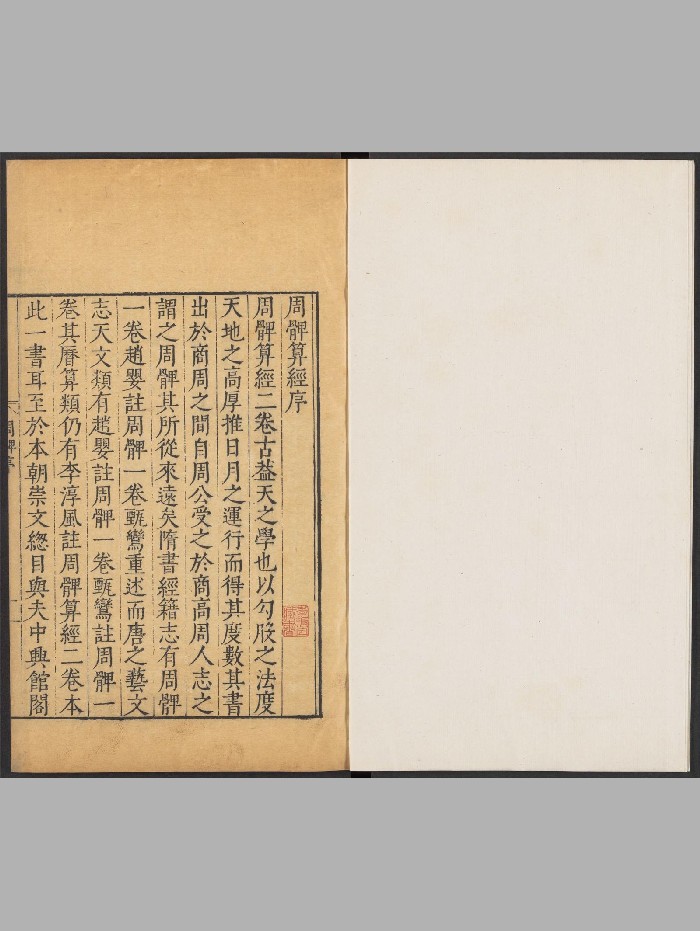 周髀算經序
周髀算經二卷古葢天之學也以勾股之法度
天地之高厚推日月之運行而得其度數其書
出於商周之間自周公受之於商高周人志之
謂之周髀其所從來遠矣隋書經籍志有周髀
一卷趙嬰註周髀一卷甄鸞重述而唐之藝文
志天文類有趙嬰註周髀一卷甄鸞註周髀一
卷其曆算類仍有李淳風註周髀算經二卷本
此一書耳至於本朝崇文緫目與夫中興館閣
周髀序
一